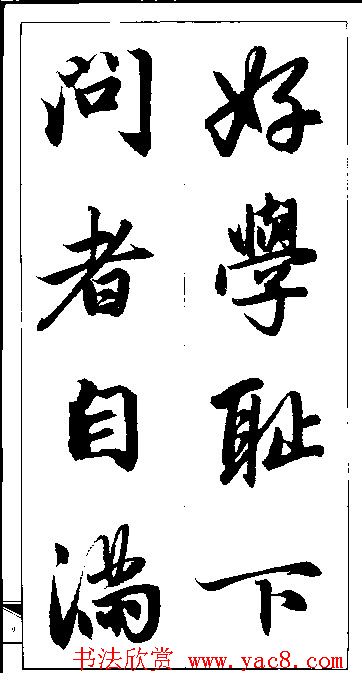 好學耻下
問者自滿
书法欣赏 www.yac8.com